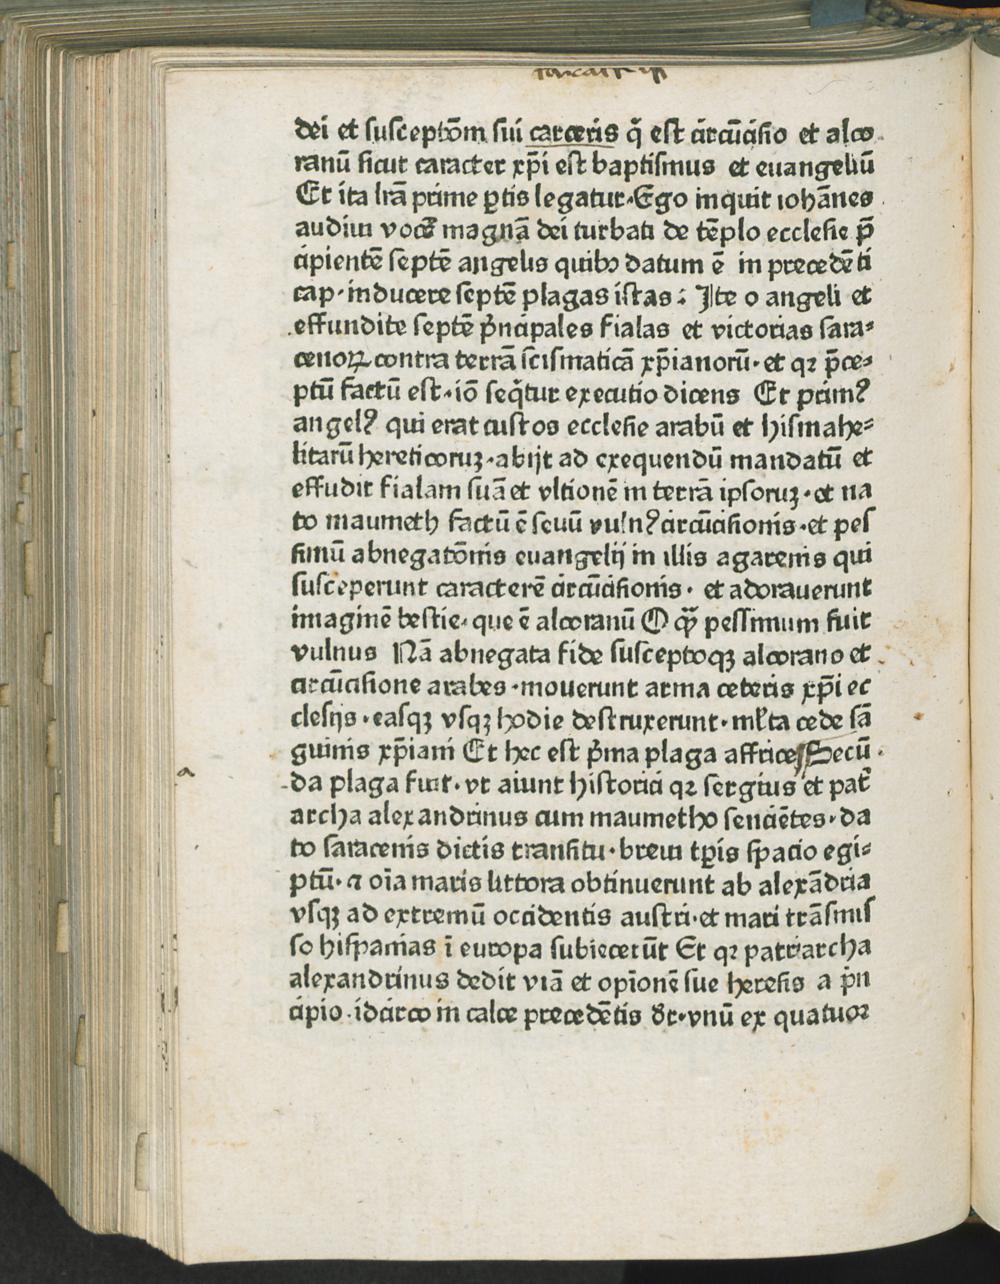 dei et susceptōm sui carceris q̄ est circūcisio et alco
ranū sicut caracter xp̄i est baptismus et euangeliū
Et ita lr̄a prime ꝑtis legatur·Ego inquit iohānes
audiui vocē magnā dei turbati de tēplo ecclesie p̄
cipientē septē angelis quibꝫ datum ē in precedēti
cap·inducere septē plagas istas : Ite o angeli et
effundite septē p̄ncipales fialas et victorias sara⸗
cenoꝝ contra terrā scismaticā xp̄ianorū·et qꝛ p̄ce⸗
ptū factū est·iō seq̄tur executio dicens Et primꝰ
angelꝰ qui erat custos ecclesie arabū et hismahe⸗
litarū hereticoruꝫ·abijt ad exequendū mandatū et
effudit fialam suā et vltionē in terrā ipsoruꝫ·et na
to maumeth factū ē seuū vulnꝰ circūcisionis·et pes
simū abnegatōnis euangelij in illis agarenis qui
susceperunt caracterē circūcisionis· et adorauerunt
imaginē bestie·que ē alcoranū O qꝫ pessimum fuit
vulnus Nā abnegata fide susceptoqꝫ alcorano et
circūcisione arabes·mouerunt arma ceteris xp̄i ec
clesijs·easqꝫ vsqꝫ hodie destruxerunt·ml̄ta cede sā
guinis xp̄iani Et hec est p̄ma plaga affrice Secū
da plaga fuit·vt aiunt historici qꝛ sergius et pat̄
archa alexandrinus cum maumetho sencientes·da
to saracenis dictis transitu·breui tꝑis spacio egi⸗
ptū·⁊ oīa maris littora obtinuerunt ab alexādria
vsqꝫ ad extremū occidentis austri·et mari trāsmis
so hispanias ī europa subiecerūt Et qꝛ patriarcha
alexandrinus dedit viā et opīonē sue heresis a p̄n
cipio·idcirco in calce precedētis dr̄·vnū ex quatuor